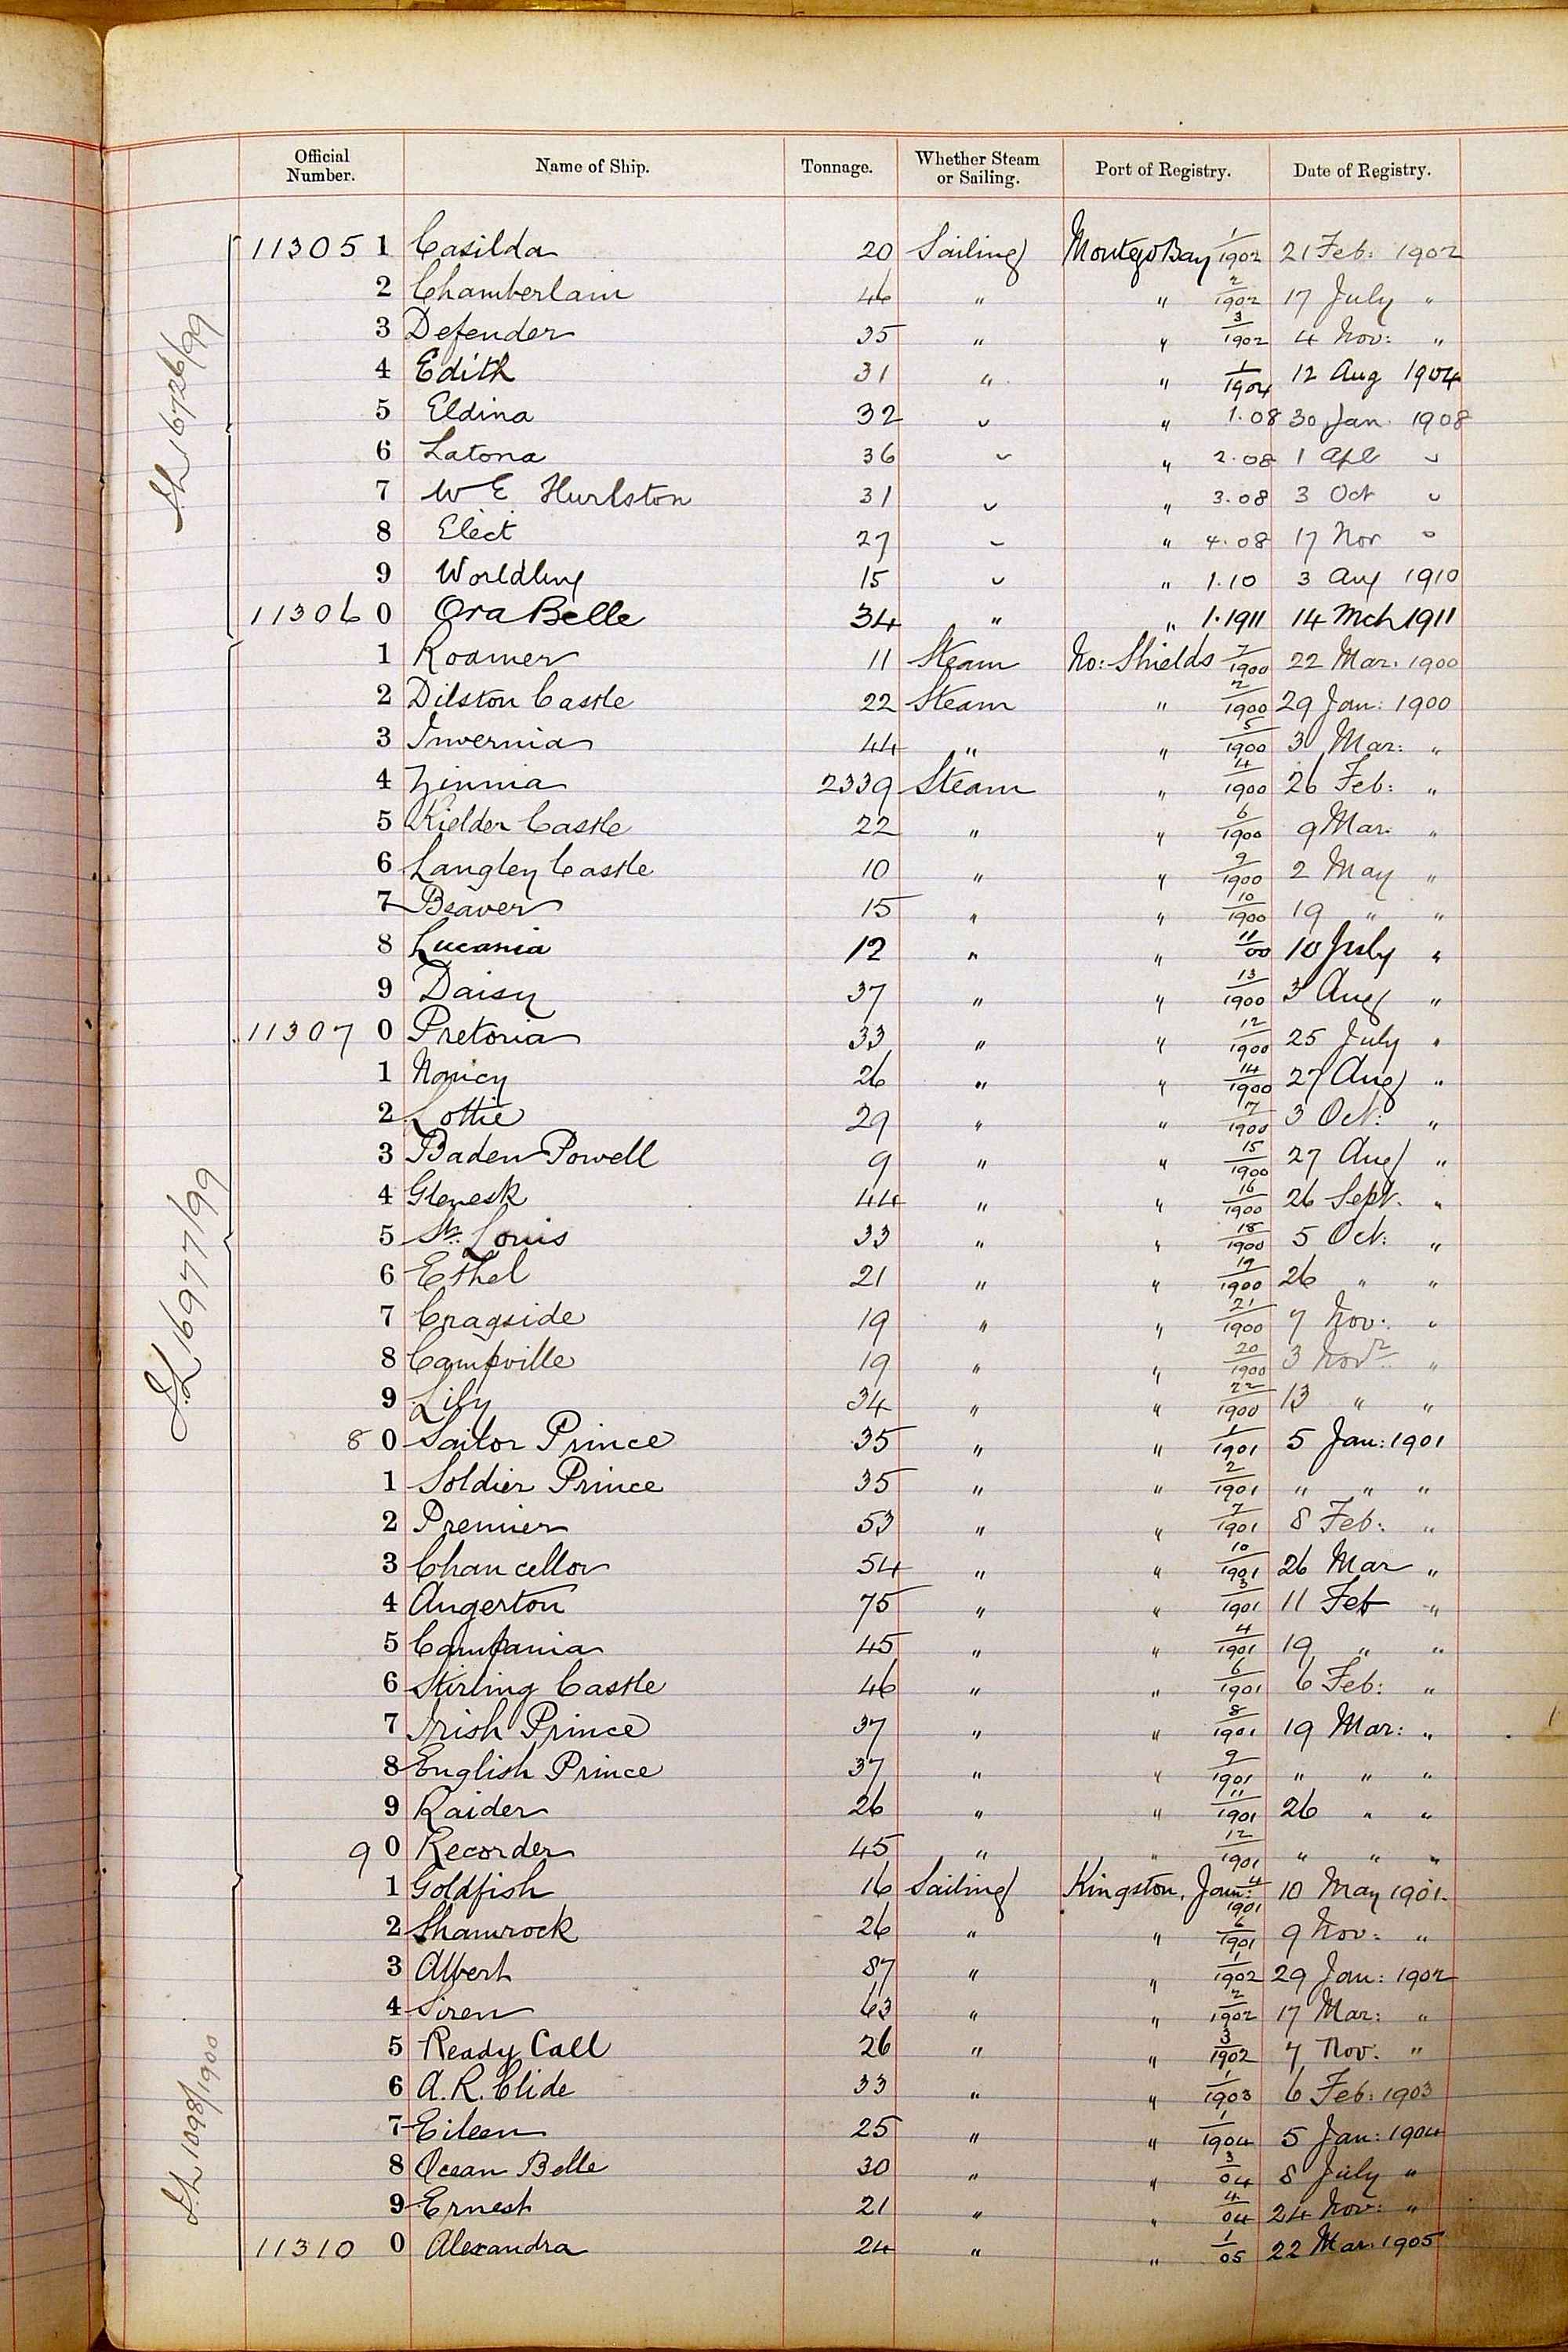 Official Number. Name of Ship. Tonnage. Whether Steam or Sailing. Port of Registry. Date of Registry.
11305 1 Casilda 20 Sailing Montego Bay 1/1902 21 Feb: 1902
2 Chamberlain 46 " " 2/1902 17 July "
3 Defender 35 " " 3/1902 4 Nov: "
4 Edith 31 " " 1/1904 12 Aug 1904
5 Eldina 32 " " 1.08 30 Jan 1908
6 Latona 36 " " 2.08 1 Apl "
7 W E Hurlston 31 " " 3.08 3 Oct "
8 Elect 27 " " 4.08 17 Nov "
9 Worldling 15 " " 1.10 3 Aug 1910
11306 0 Ora Belle 34 " " 1.1911 14 Mch 1911
1 Roamer 11 Steam No: Shields 7/1900 22 Mar. 1900
2 Dilston Castle 22 Steam " 2/1900 29 Jan: 1900
3 Invernia 44 " " 5/1900 3 Mar: "
4 Zinnia 2339 Steam " 4/1900 26 Feb: "
5 Kielder Castle 22 " " 6/1900 9 Mar. "
6 Langley Castle 10 " " 9/1900 2 May "
7 Beaver 15 " " 10/1900 19 " "
8 Lucania 12 " " 11/00 10 July "
9 Daisy 37 " " 13/1900 3 Aug "
11307 0 Pretoria 33 " " 12/1900 25 July "
1 Nancy 26 " " 14/1900 27 Aug "
2 Lottie 29 " " 7/1900 3 Oct: "
3 Baden Powell 9 " " 15/1900 27 Aug "
4 Glenesk 44 " " 16/1900 26 Sept. "
5 St. Louis 33 " " 18/1900 5 Oct: "
6 Ethel 21 " " 19/1900 26 " "
7 Cragside 19 " " 21/1900 7 Nov: "
8 Campville 19 " " 20/1900 3 Novr "
9 Lily 34 " " 22/1900 13 " "
8 0 Sailor Prince 35 " " 1/1901 5 Jan: 1901
1 Soldier Prince 35 " " 2/1901 " " "
2 Premier 53 " " 7/1901 8 Feb: "
3 Chancellor 54 " " 10/1901 26 Mar "
4 Angerton 75 " " 3/1901 11 Feb "
5 Campania 45 " " 4/1901 19 " "
6 Stirling Castle 46 " " 6/1901 6 Feb: "
7 Irish Prince 37 " " 8/1901 19 Mar: "
8 English Prince 37 " " 9/1901 " " "
9 Raider 26 " " 11/1901 26 " "
9 0 Recorder 45 " " 12/1901 " " "
1 Goldfish 16 Sailing Kingston, Jam: 4/1901 10 May 1901.
2 Shamrock 26 " " 6/1901 9 Nov: "
3 Albert 87 " " 1/1902 29 Jan: 1902
4 Siren 63 " " 2/1902 17 Mar: "
5 Ready Call 26 " " 3/1902 7 Nov. "
6 A. R. Clide 33 " " 1/1903 6 Feb: 1903
7 Eileen 25 " " 1/1904 5 Jan: 1904
8 Ocean Belle 30 " " 3/04 8 July "
9 Ernest 21 " " 4/04 24 Nov: "
11310 0 Alexandra 24 " " 1/05 22 Mar. 1905
16726/99
16977/99
1098/1900